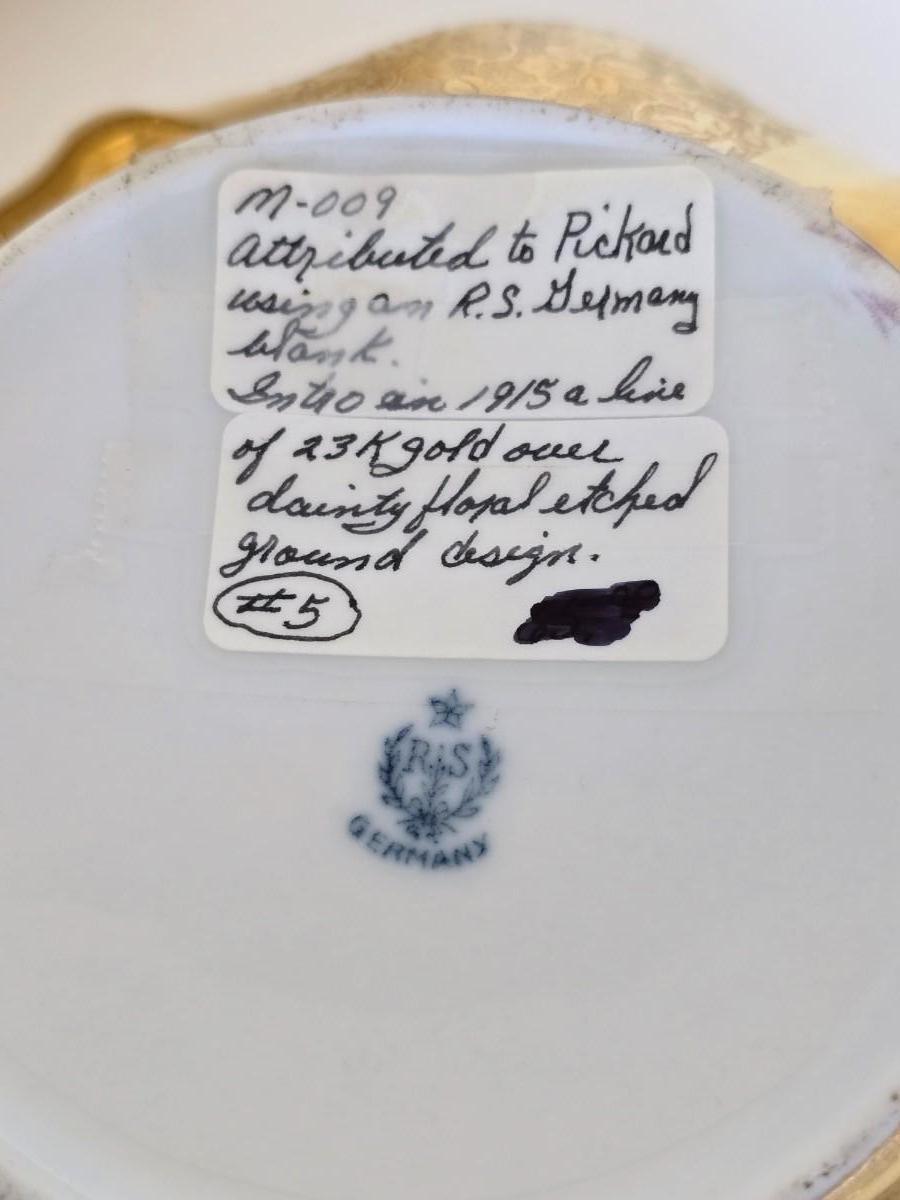 M-009
attributed to Pickard
using an R.S. Germany
blank.
Intro in 1915 a line
of 23K gold over
dainty floral etched
ground design.
#5
R S
GERMANY